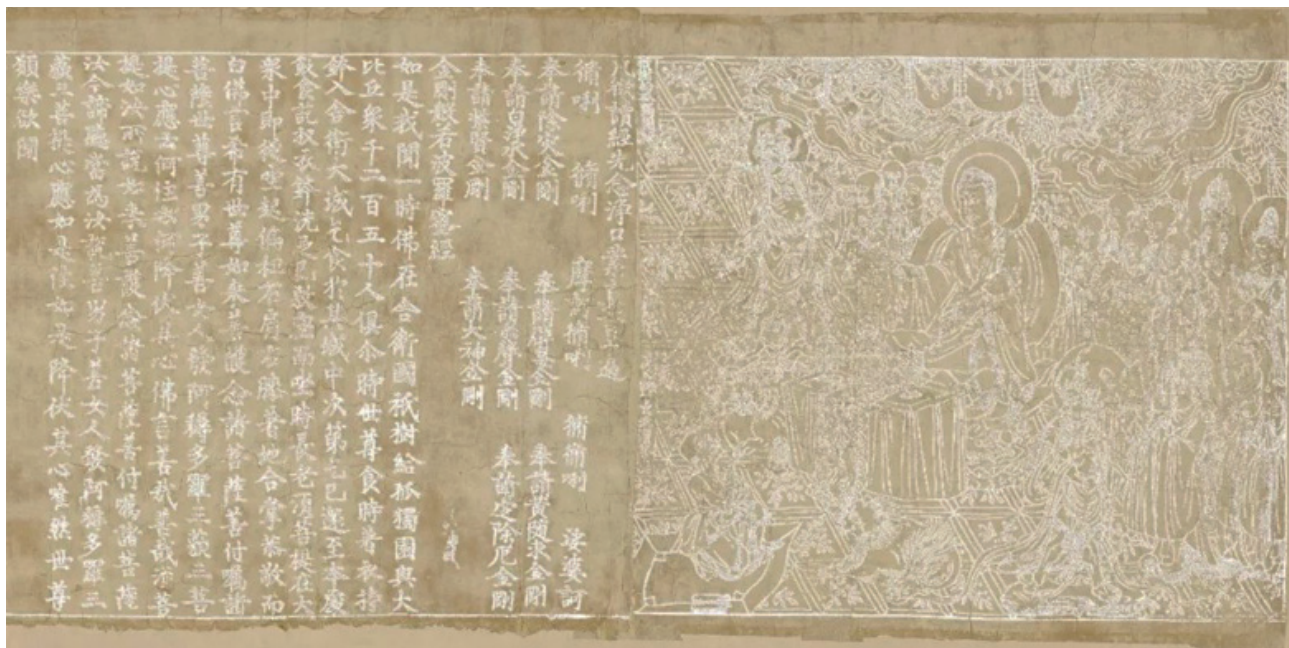 凡欲讀經先念淨口業真言遍
脩唎 脩唎 摩訶脩唎 脩脩唎 娑婆訶
奉請除災金剛 奉請辟毒金剛 奉請黃隨求金剛
奉請白淨水金剛 奉請赤聲金剛 奉請定除厄金剛
奉請紫賢金剛 奉請大神金剛
金剛般若波羅蜜經
如是我聞一時佛在舍衛國祇樹給孤獨園與大
比丘眾千二百五十人俱尒時世尊食時著衣持
鉢入舍衛大城乞食於其城中次第乞已還至本處
飯食訖收衣鉢洗足已敷座而坐時長老須菩提在大
眾中即從座起偏袒右肩右膝著地合掌恭敬而
白佛言希有世尊如來善護念諸菩薩善付囑諸
菩薩世尊善男子善女人發阿耨多羅三藐三菩
提心應云何住云何降伏其心佛言善哉善哉須菩
提如汝所說如來善護念諸菩薩善付囑諸菩薩
汝今諦聽當為汝說善男子善女人發阿耨多羅三
藐三菩提心應如是住如是降伏其心唯然世尊
願樂欲聞